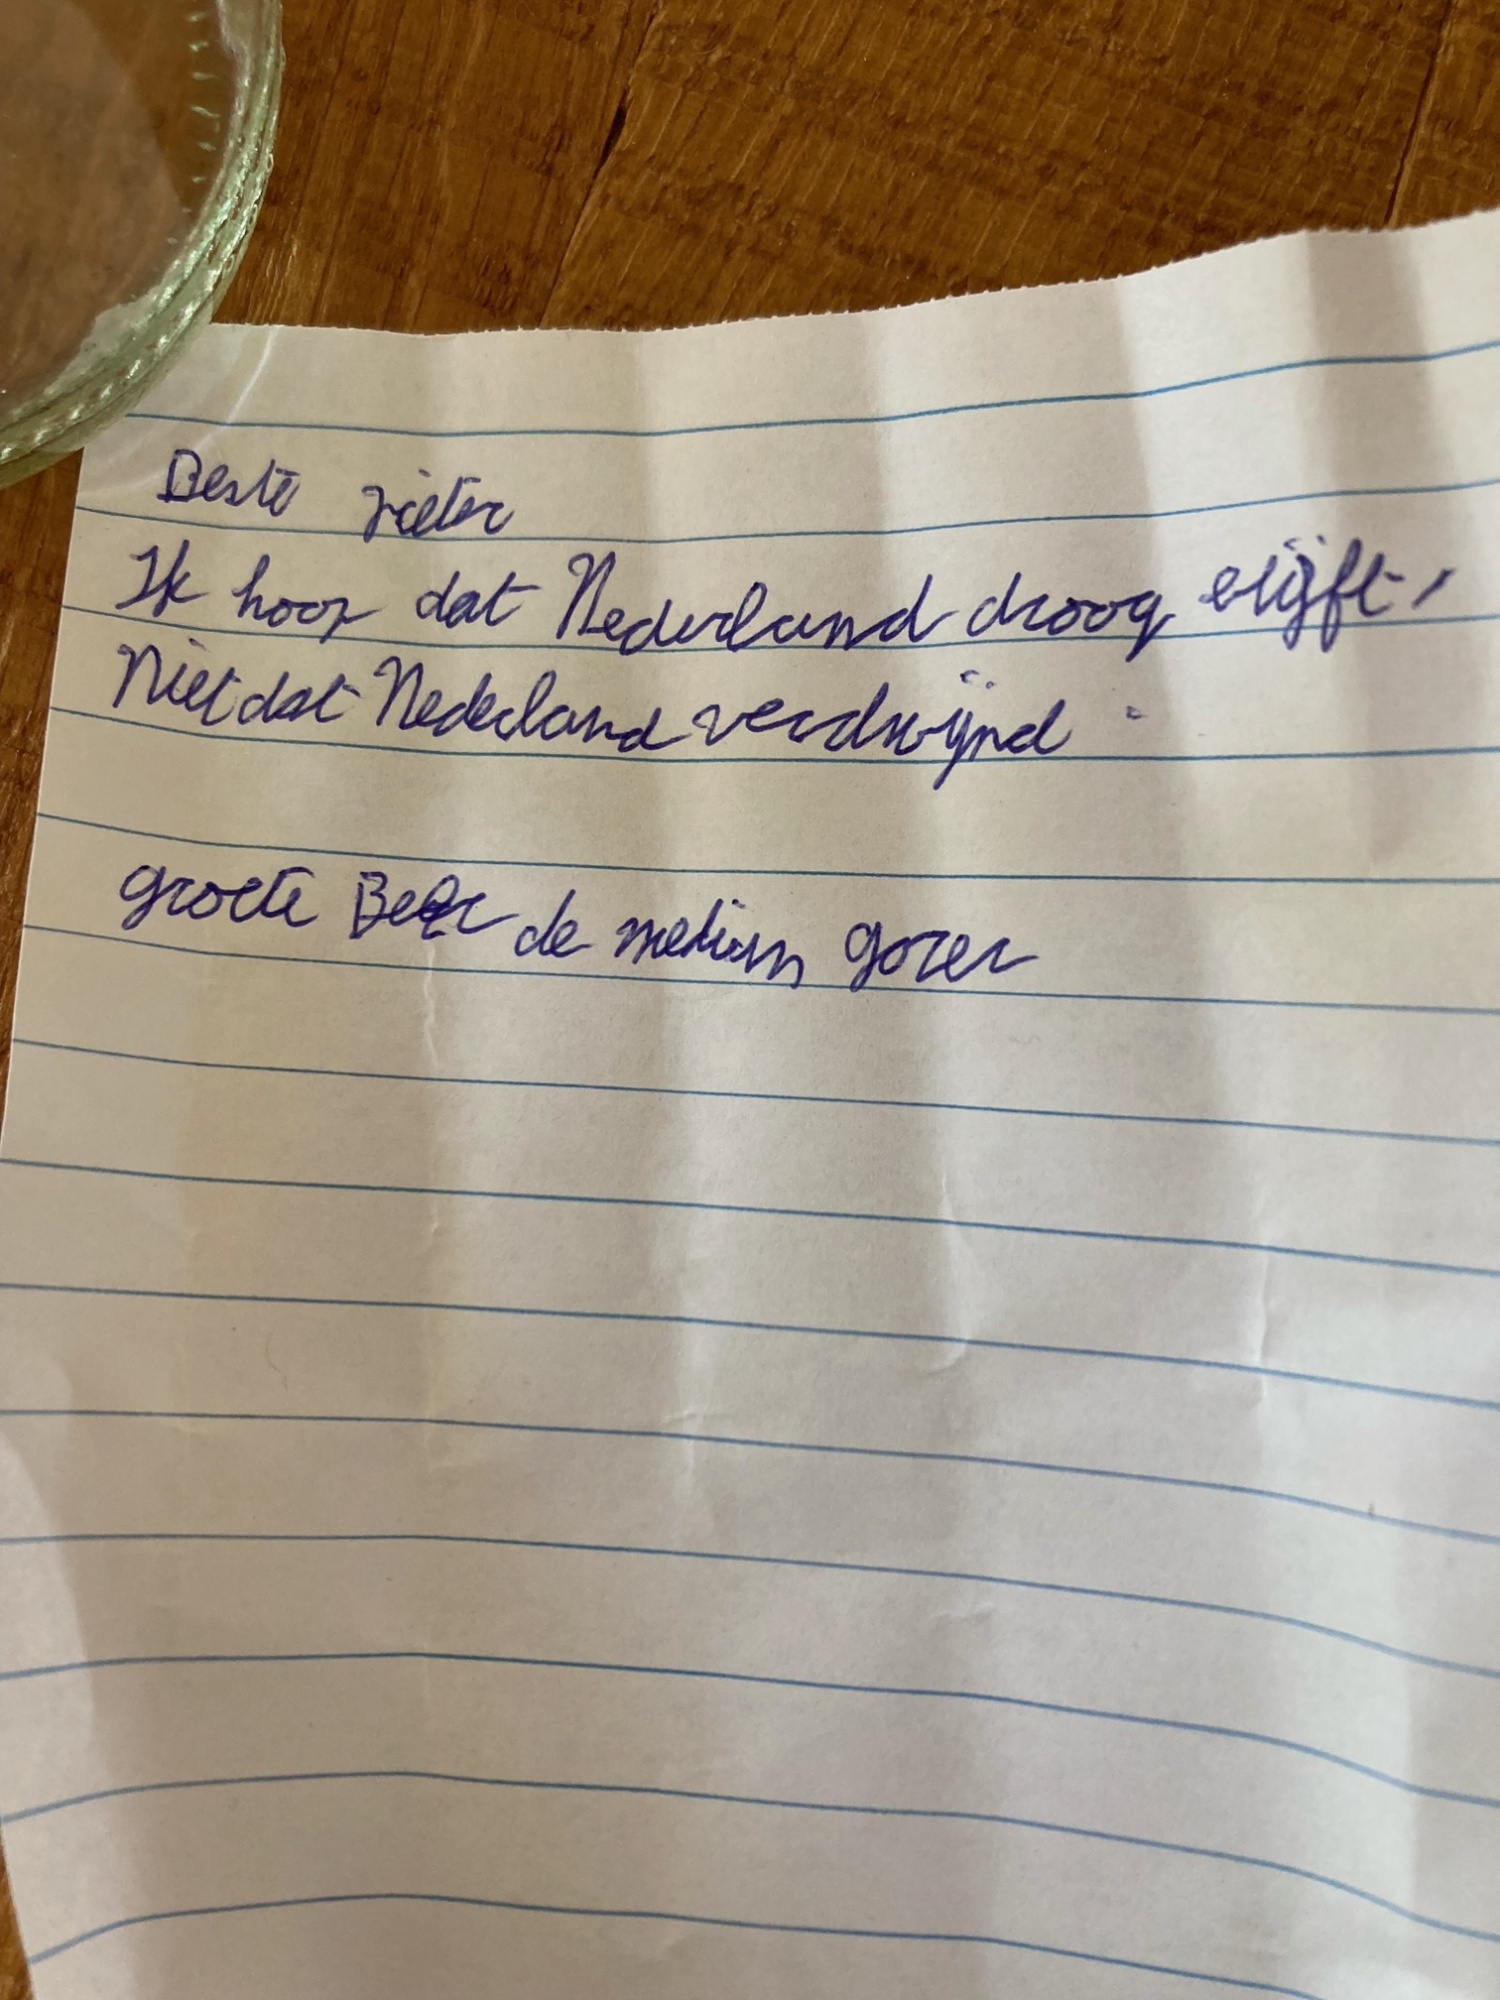 Beste pieter
Ik hoop dat Nederland droog blijft,
Niet dat Nederland verdwijnd.
groete Beer de